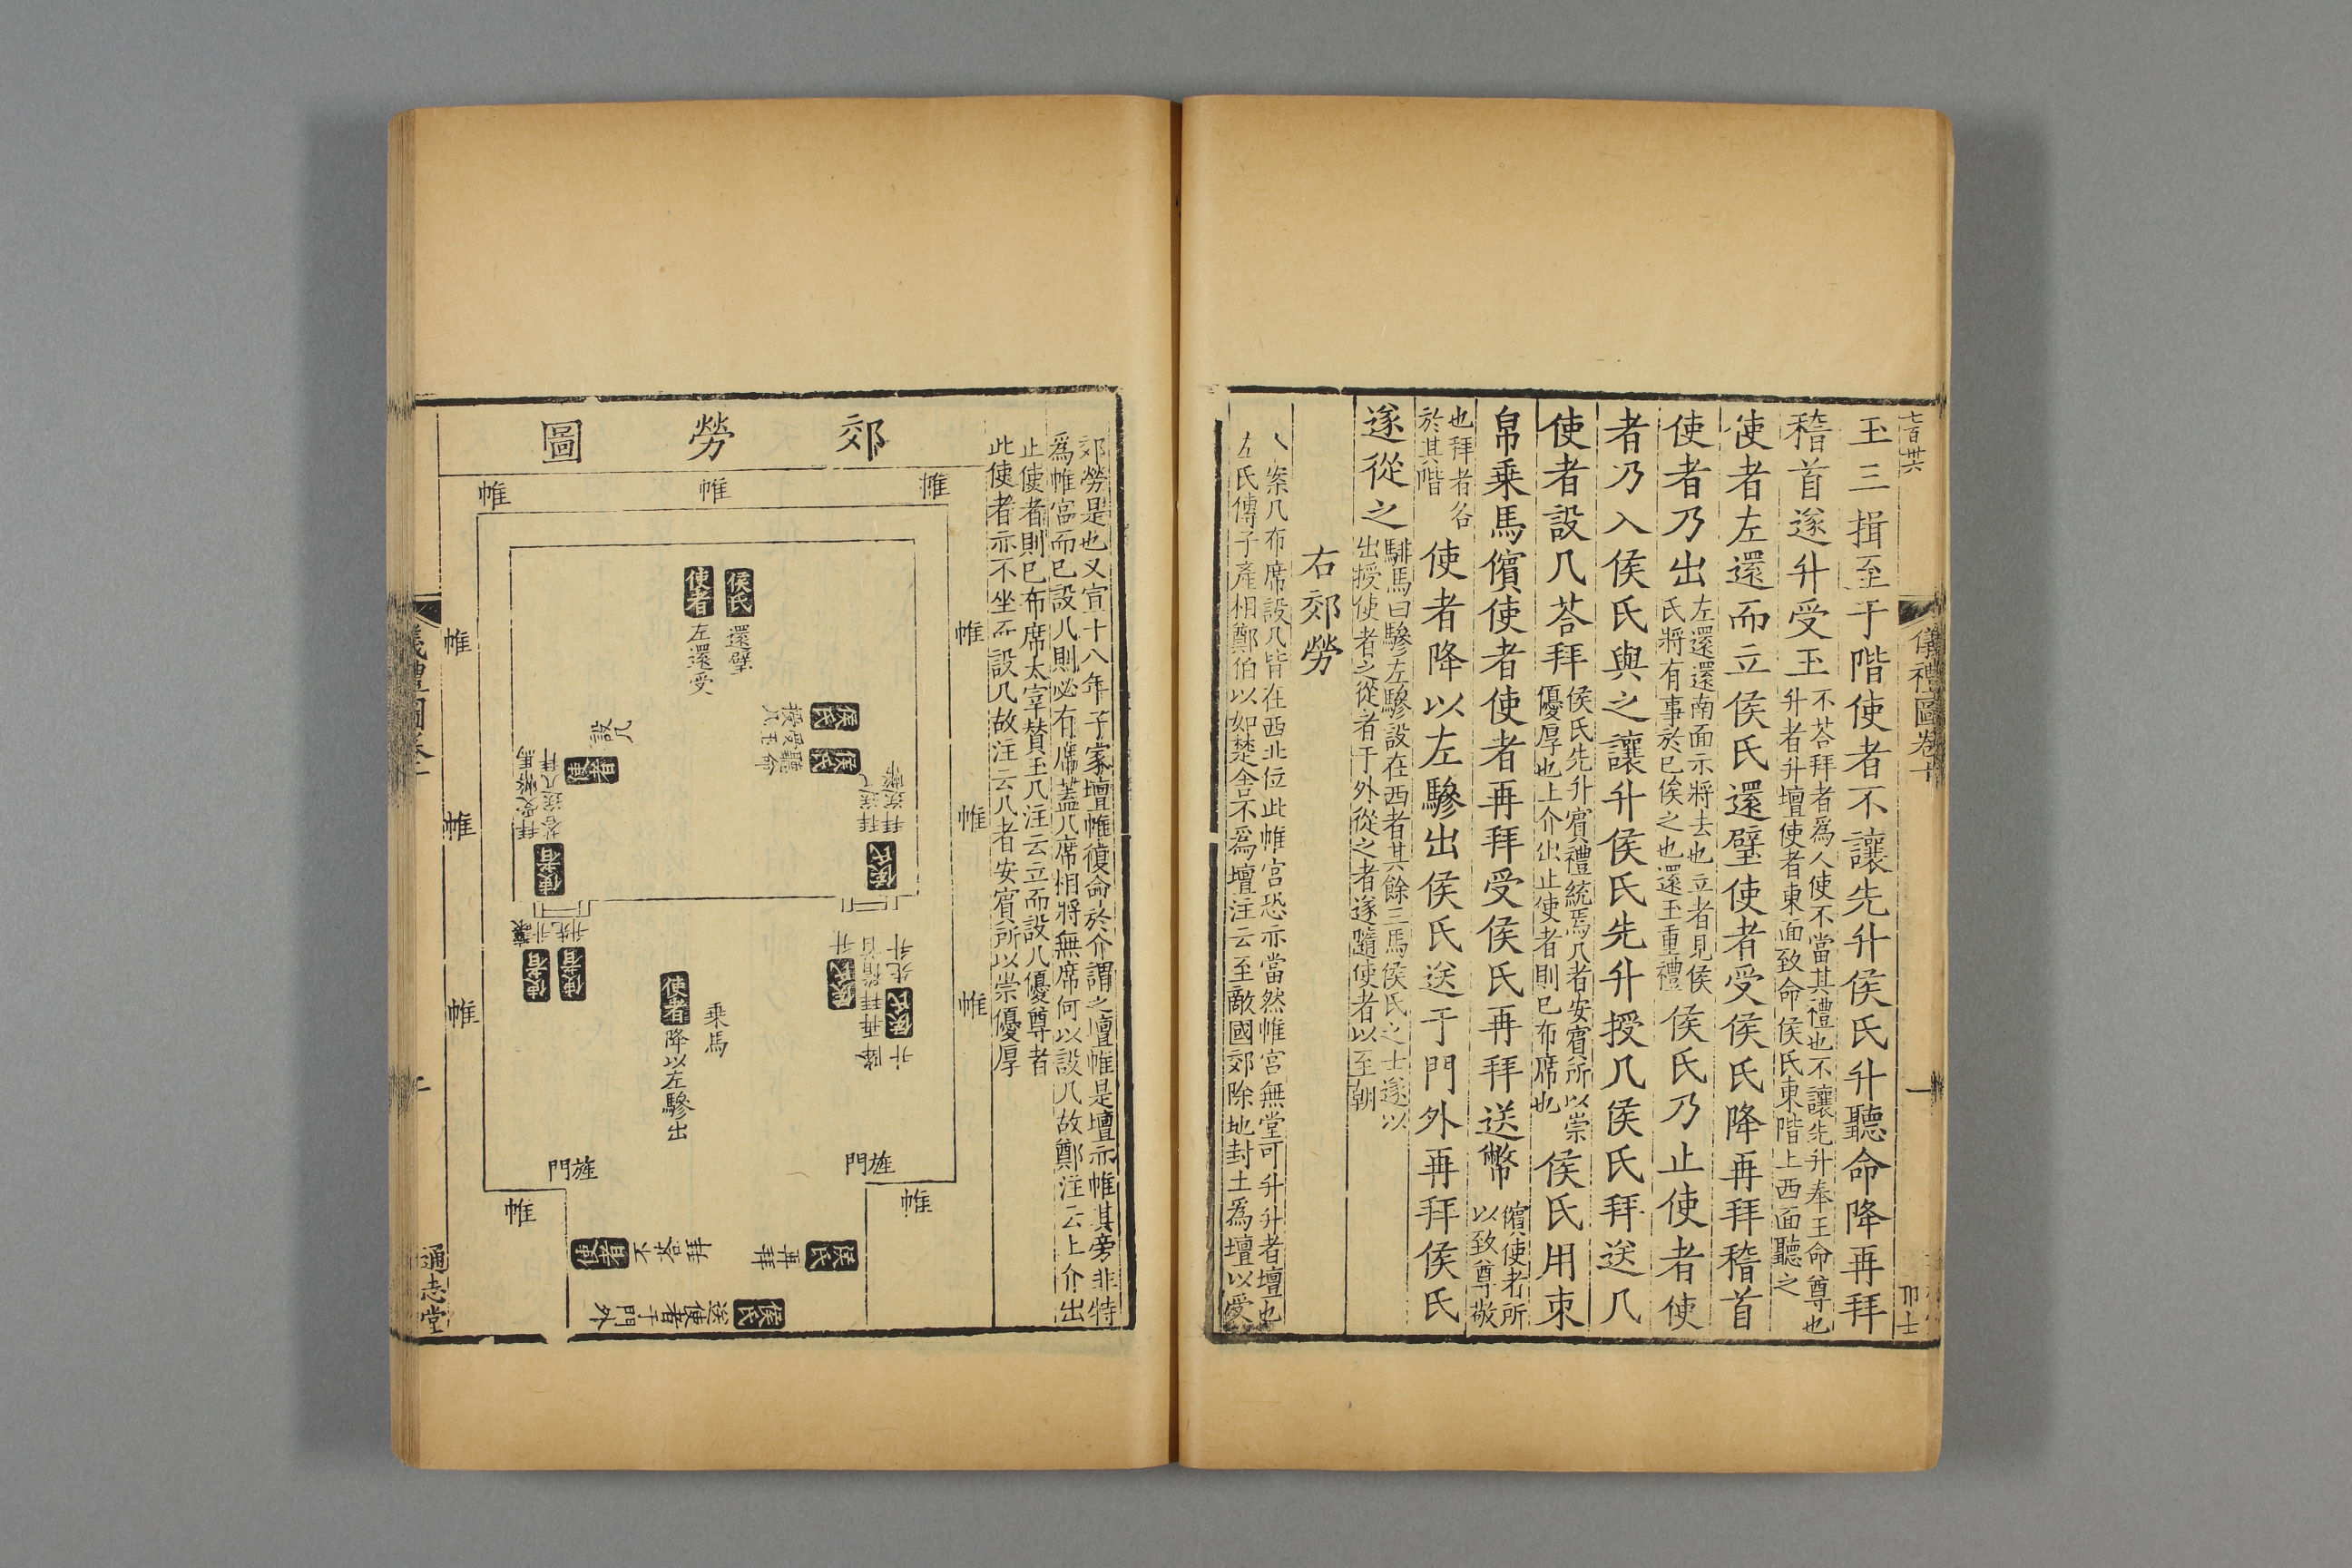 七百卅六
儀禮圖卷十
一
玉三揖至于階使者不讓先升侯氏升聽命降再拜
稽首遂升受玉
不荅拜者爲人使不當其禮也不讓先升奉王命尊也
升者升壇使者東面致命侯氏東階上西面聽之
使者左還而立侯氏還璧使者受侯氏降再拜稽首
使者乃出
左還還南面示將去也立者見侯
氏將有事於已俟之也還玉重禮
侯氏乃止使者使
者乃入侯氏與之讓升侯氏先升授几侯氏拜送几
使者設几荅拜
侯氏先升賓禮統焉几者安賓所以崇
優厚也上介出止使者則已布席也
侯氏用束
帛乗馬儐使者使者再拜受侯氏再拜送幣
儐使者所
以致尊敬
也拜者各
於其階
使者降以左驂出侯氏送于門外再拜侯氏
遂從之
騑馬曰驂左驂設在西者其餘三馬侯氏之士遂以
出授使者之從者于外從之者遂隨使者以至朝
右郊勞
案几布席設几皆在西北位此帷宮恐亦當然帷宮無堂可升升者壇也
左氏傳子產相鄭伯以如楚舍不爲壇注云至敵國郊除地封土爲壇以受
郊勞是也又宣十八年子家壇帷復命於介謂之壇帷是壇亦帷其旁非特
爲帷宮而已設几則必有席蓋几席相將無席何以設几故鄭注云上介出
止使者則已布席太宰賛玉几注云立而設几優尊者
此使者亦不坐而設几故注云几者安賓所以崇優厚
郊勞圖
帷
帷
帷
帷
帷
帷
帷
帷
帷
侯氏
還璧
使者
左還受
侯氏
授几
侯氏
聽命
受玉
使者
設几
侯氏
拜送幣
拜送几
使者
荅拜送几
拜受幣馬
侯氏
升
侯氏
升先升
降再拜稽首
升
使者
先升
使者
升讓
乗馬
使者
降以左驂出
旌門
旌門
帷
帷
侯氏
再拜
使者
不荅拜
侯氏
送使者于門外
通志堂